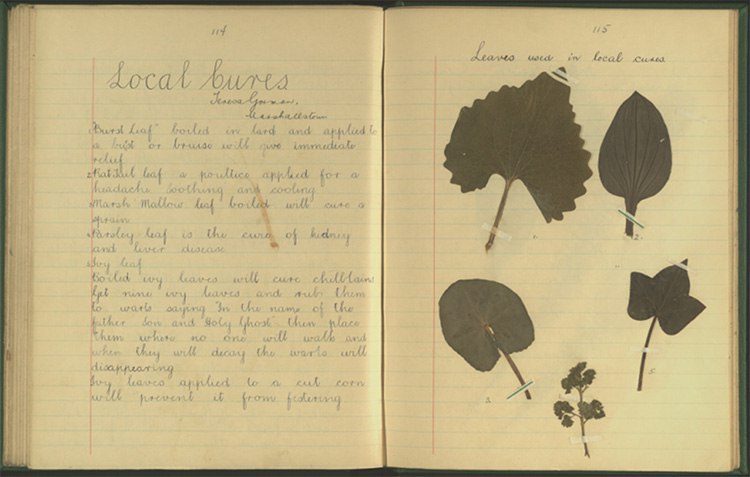 114
Local Cures
Teresa Gorman,
Marshallstown
1. "Burst Leaf" boiled in lard and applied to
a burst or bruise will give immediate
relief
2. Rat Tail leaf a poultice applied for a
headache soothing and cooling
3. Marsh Mallow leaf boiled will cure a
sprain
4. Parsley leaf is the cure of kidney
and liver disease
5. Ivy leaf
Boiled ivy leaves will cure chilblains
Get nine ivy leaves and rub them
to warts saying "In the name of the
father Son and Holy Ghost" then place
them where no one will walk and
when they will decay the warts will
disappearing
Ivy leaves applied to a cut corn
will prevent it from festering
115
Leaves used in local cures
1.
2.
3.
5.